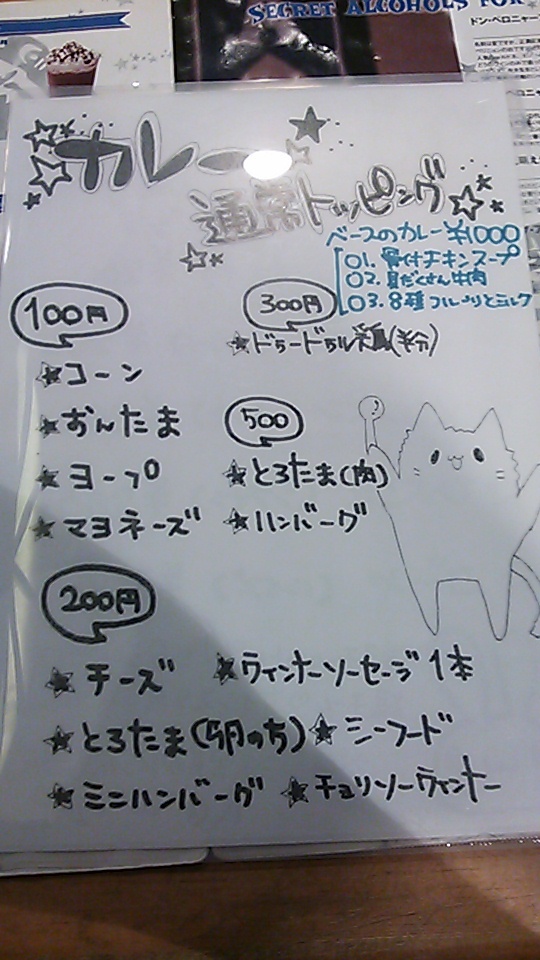 SECRET ALCOHOLS FOR
ドン・ペロニャー
カレー
通常トッピング
ベースのカレー ¥1000
01. 骨付チキンスープ
02. 具だくさん牛肉
03. 8種フルーツとミルク
100円
コーン
おんたま
ヨープ
マヨネーズ
300円
ドゥードゥル(粉)
500
とろたま(肉)
ハンバーグ
200円
チーズ
ウィンナーソーセージ1本
とろたま(卵のち)
シーフード
ミニハンバーグ
チョリソーウィンナー